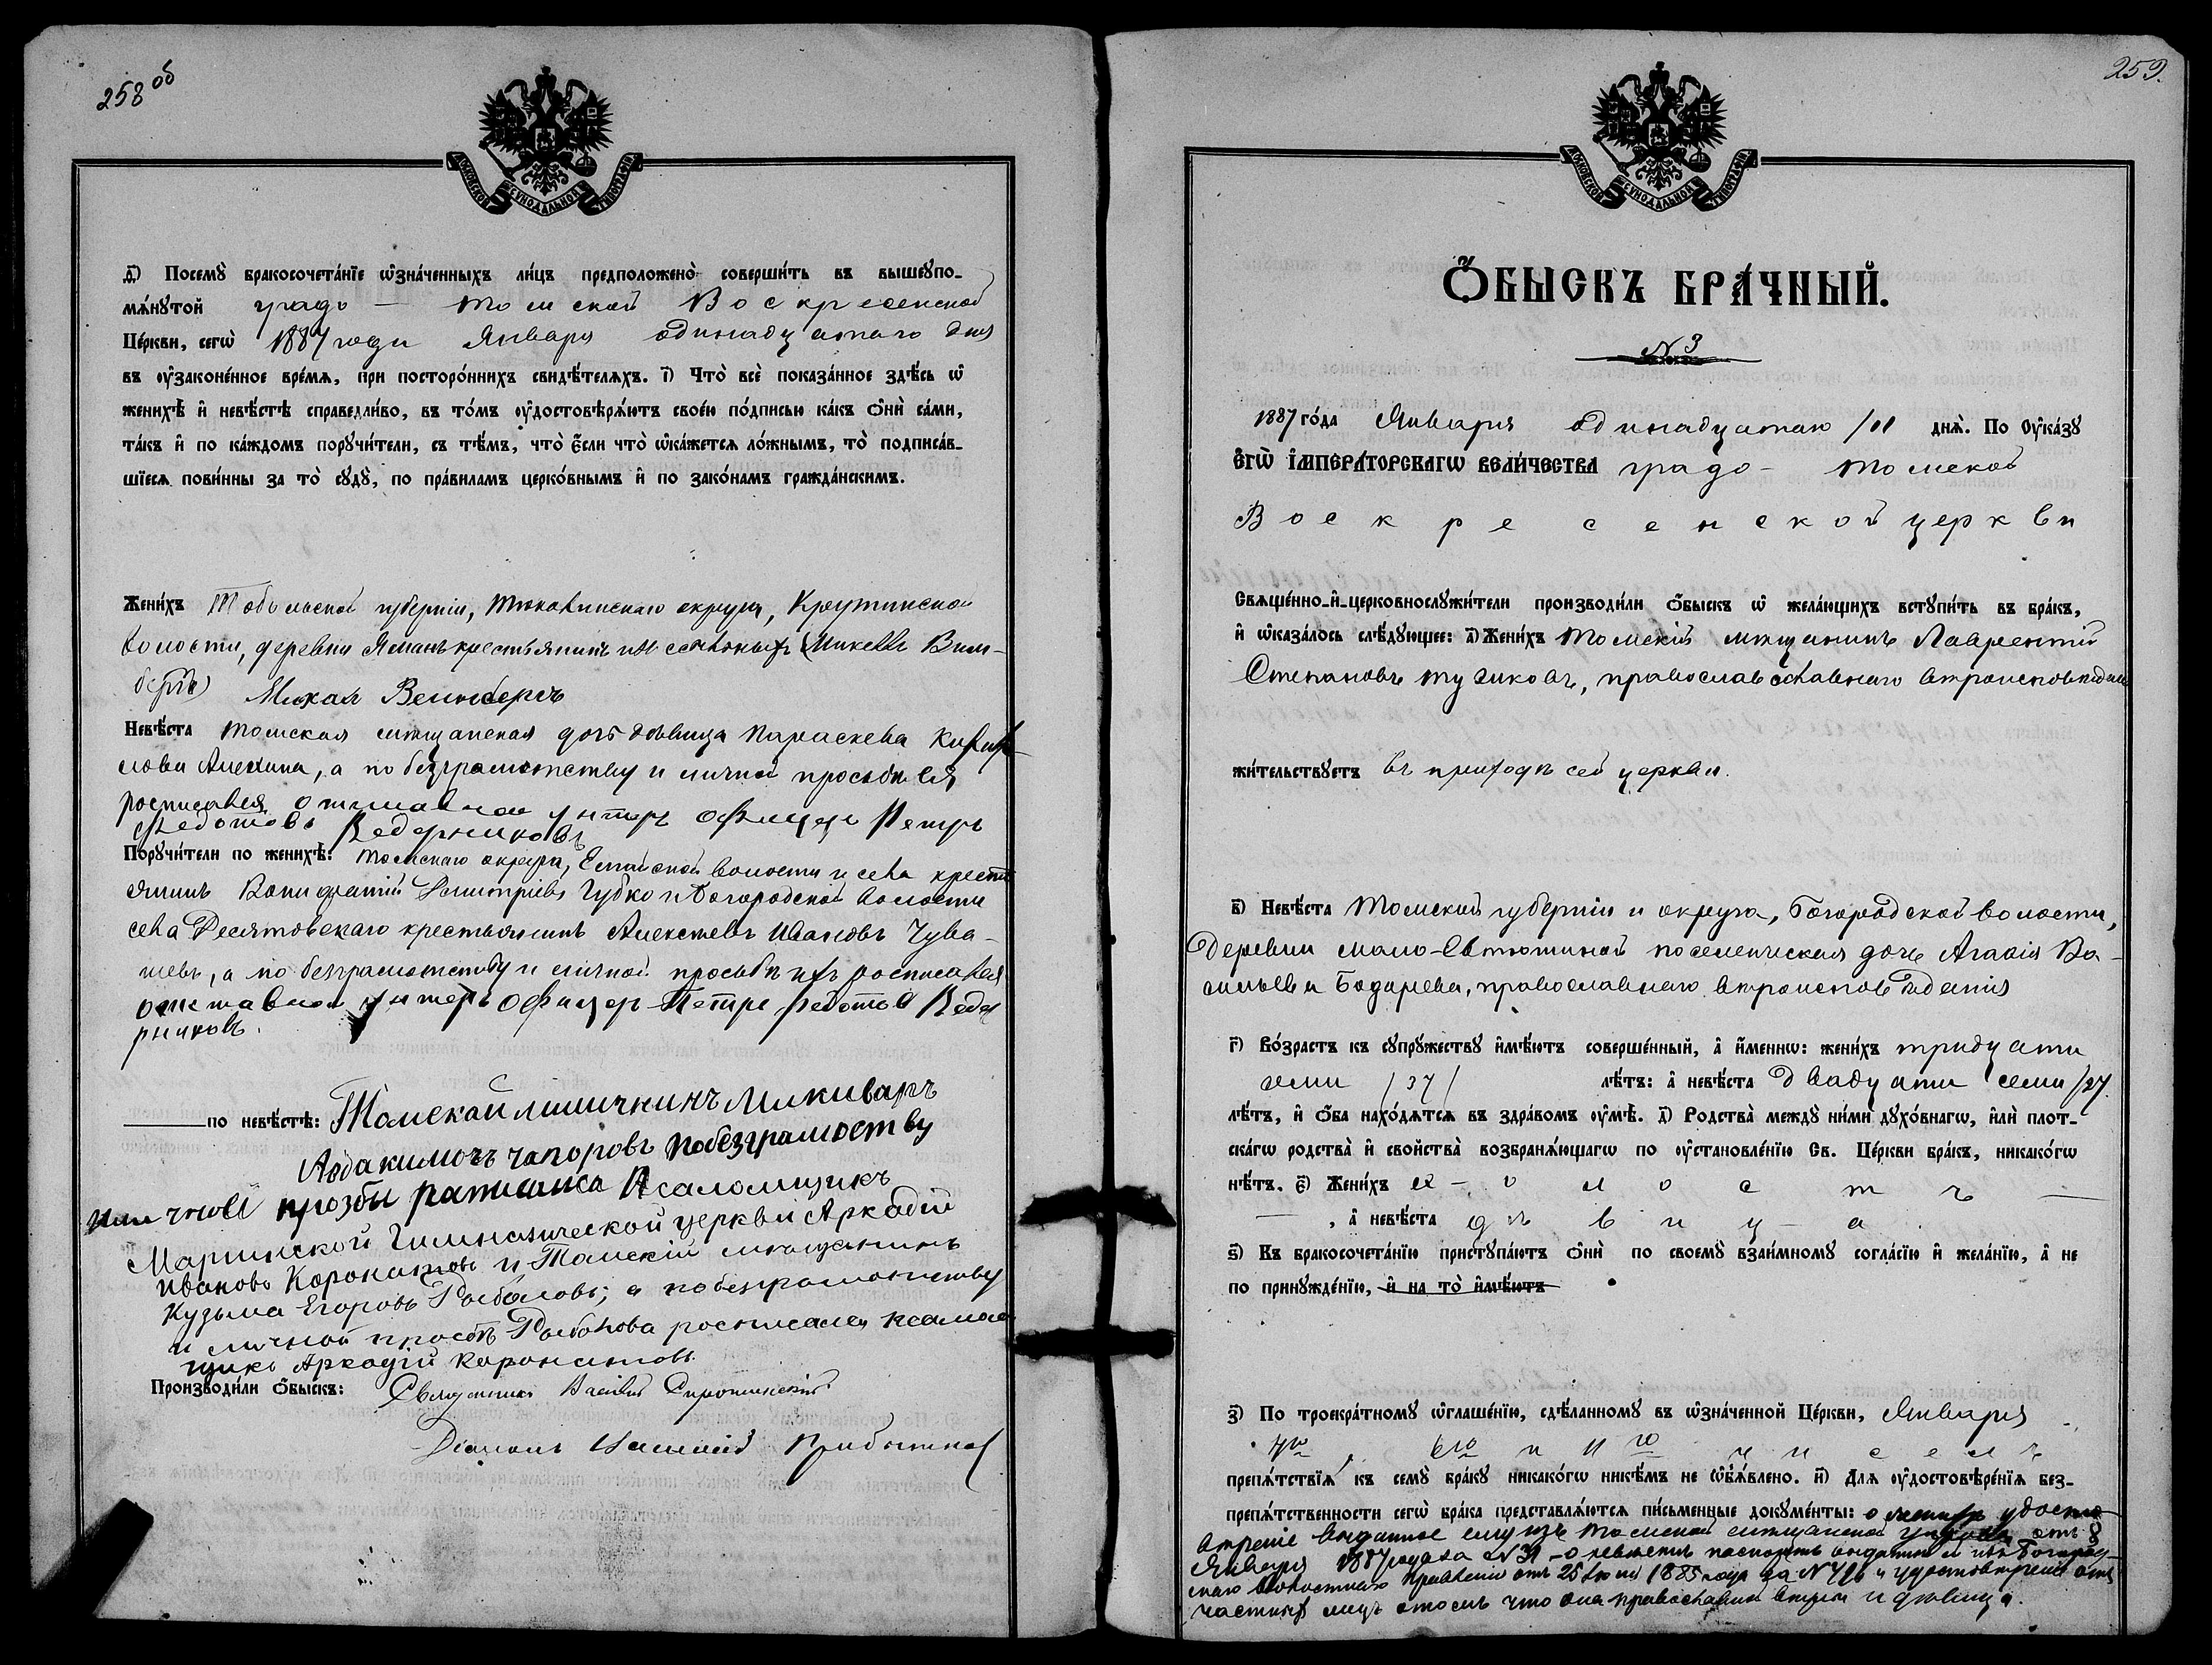 258 об
МОСКОВСКОЙ СѴНОДАЛЬНОЙ ТИПОГРАФІИ
д҃) Посемꙋ̀ бракосочета́нїе ѡ҆зна́ченныхъ ли́цъ предположено̀ соверши́ть въ вышеꙋпо-
мѧ́нꙋтой градо - Томской Воскресенской
Це́ркви, сегѡ̀ 1887 года Января одинадцатаго дня
въ ᲂу҆зако́ненное вре́мѧ, при посторо́ннихъ свидѣ́телѧхъ. і҃) Что̀ всѐ показа́нное здѣ́сь ѡ҆
женихѣ̀ и҆ невѣ́стѣ справедли́во, въ то́мъ ᲂу҆достовѣрѧ́ютъ свое́ю по́дписью ка́къ ѻ҆нѝ са́ми,
та́къ и҆ по ка́ждомъ порꙋчи́тели, съ тѣ́мъ, что̀ є҆́сли что̀ ѡ҆ка́жетсѧ ло́жнымъ, то̀ подписа́в-
шїесѧ пови́нны за то̀ сꙋдꙋ̀, по пра́виламъ церко́внымъ и҆ по зако́намъ гражда́нскимъ.
Жени́хъ Тобольской губерніи, Тюкалинскаго округа, Крутинской
волости, деревни Яманъ крестьянинъ изъ ссыльныхъ (Микель Вим-
бергъ) Михал Веинбергъ
Невѣ́ста Томская мѣщанская дочь дѣвица Параскева Кирил-
лова Алехина, а по безграмотству и личной просьбѣ ея
росписался отставной унтеръ офицеръ Петръ
Федотовъ Ведерниковъ
Порꙋчи́тели по женихѣ̀: Томскаго округа, Елгайской волости и села кресть
янинъ Димитріевъ Губко и Богородской волости
села Десятовскаго крестьянинъ Алексѣевъ Ивановъ Чува-
шевъ, а по безграмотству и личной просьбѣ ихъ росписался
отставной унтеръ офицеръ Петръ Федотовъ Веде
рниковъ.
по невѣ́стѣ: Томскай мишчнинъ
Авдакимочъ Чапоровъ побезграмоству
иличной прозбы Псаломщикъ
Маріинской Гимназической церкви Аркадій
Ивановъ Коронатовъ и Томскій мѣщанинъ
Кузьма Егоровъ Рыбаловъ; а побезграмотству
и личной просьбѣ Рыбалова росписался псалом
щикъ Аркадій Коронатовъ
Производи́ли ѻ҆́быскъ: Священникъ Василій Сиротинскій
Діаконъ Прибытковъ
259.
МОСКОВСКОЙ СѴНОДАЛЬНОЙ ТИПОГРАФІИ
Ѻ҆́БЫСКЪ БРА́ЧНЫЙ.
№ 3
1887 го́да Января одинадцатаго /11 днѧ̀. По ᲂу҆ка́зꙋ
Є҆ГѠ̀ И҆МПЕРА́ТОРСКАГѠ ВЕЛИ́ЧЕСТВА градо - Томской
Воскресенской церкви
Свѧще́нно-и҆-церковнослꙋжи́тели производи́ли ѻ҆́быскъ ѡ҆ жела́ющихъ встꙋпи́ть въ бра́къ,
и҆ ѡ҆каза́лось слѣ́дꙋющее: а҃) Жени́хъ Томскій мѣщанинъ Лаврентій
Степановъ Тузиковъ, православнаго вѣроисповѣданія
жи́тельствꙋетъ въ приходѣ сей церкви.
в҃) Невѣ́ста Томской губерніи и округа, Богородской волости,
деревни Мало-Евтюшиной поселенческая дочь Агавія Ва-
сильева Бодарева, православнаго вѣроисповѣданія
г҃) Во́зрастъ къ сꙋпрꙋ́жествꙋ и҆мѣ́ютъ соверше́нный, а҆ и҆́меннѡ: жени́хъ тридцати
семи /37/ лѣ́тъ: а҆ невѣ́ста двадцати семи /27.
лѣ́тъ, и҆ ѻ҆́ба нахо́дѧтсѧ въ здра́вомъ ᲂу҆мѣ̀. д҃) Родства̀ междꙋ̀ ни́ми дꙋхо́внагѡ, и҆лѝ плот-
ска́гѡ родства̀ и҆ сво́йства возбранѧ́ющагѡ по ᲂу҆становле́нїю Св. Це́ркви бра́къ, никако́гѡ
нѣ́тъ. є҃) Жени́хъ холостъ
, а҆ невѣ́ста дѣвица
ѕ҃) Къ бракосочета́нїю пристꙋпа́ютъ ѻ҆нѝ по своемꙋ̀ взаи́мномꙋ согла́сїю и҆ жела́нїю, а҆ не
по принꙋжде́нїю, и҆ на то̀ и҆мѣ́ютъ
з҃) По троекра́тномꙋ ѡ҆глаше́нїю, сдѣ́ланномꙋ въ ѡ҆зна́ченной Це́ркви, Января
4го, 6го и 11го чиселъ
препѧ́тствїѧ къ семꙋ̀ бра́кꙋ никако́гѡ никѣ́мъ не ѡ҆б̾ѧ́влено. и҃) Длѧ ᲂу҆достовѣре́нїѧ без-
препѧ́тственности сегѡ̀ бра́ка представлѧ́ютсѧ пи́сьменные докꙋме́нты: о женихѣ удосто
вѣреніе выданное ему изъ Томской мѣщанской управы отъ 8
Января 1887 года за №31 - о невѣстѣ паспортъ выданный изъ Богород-
скаго Волостнаго Правленія отъ 25 1885 года за и удостовѣреніе отъ
частныхъ лицъ о томъ что она православной вѣры и дѣвица.